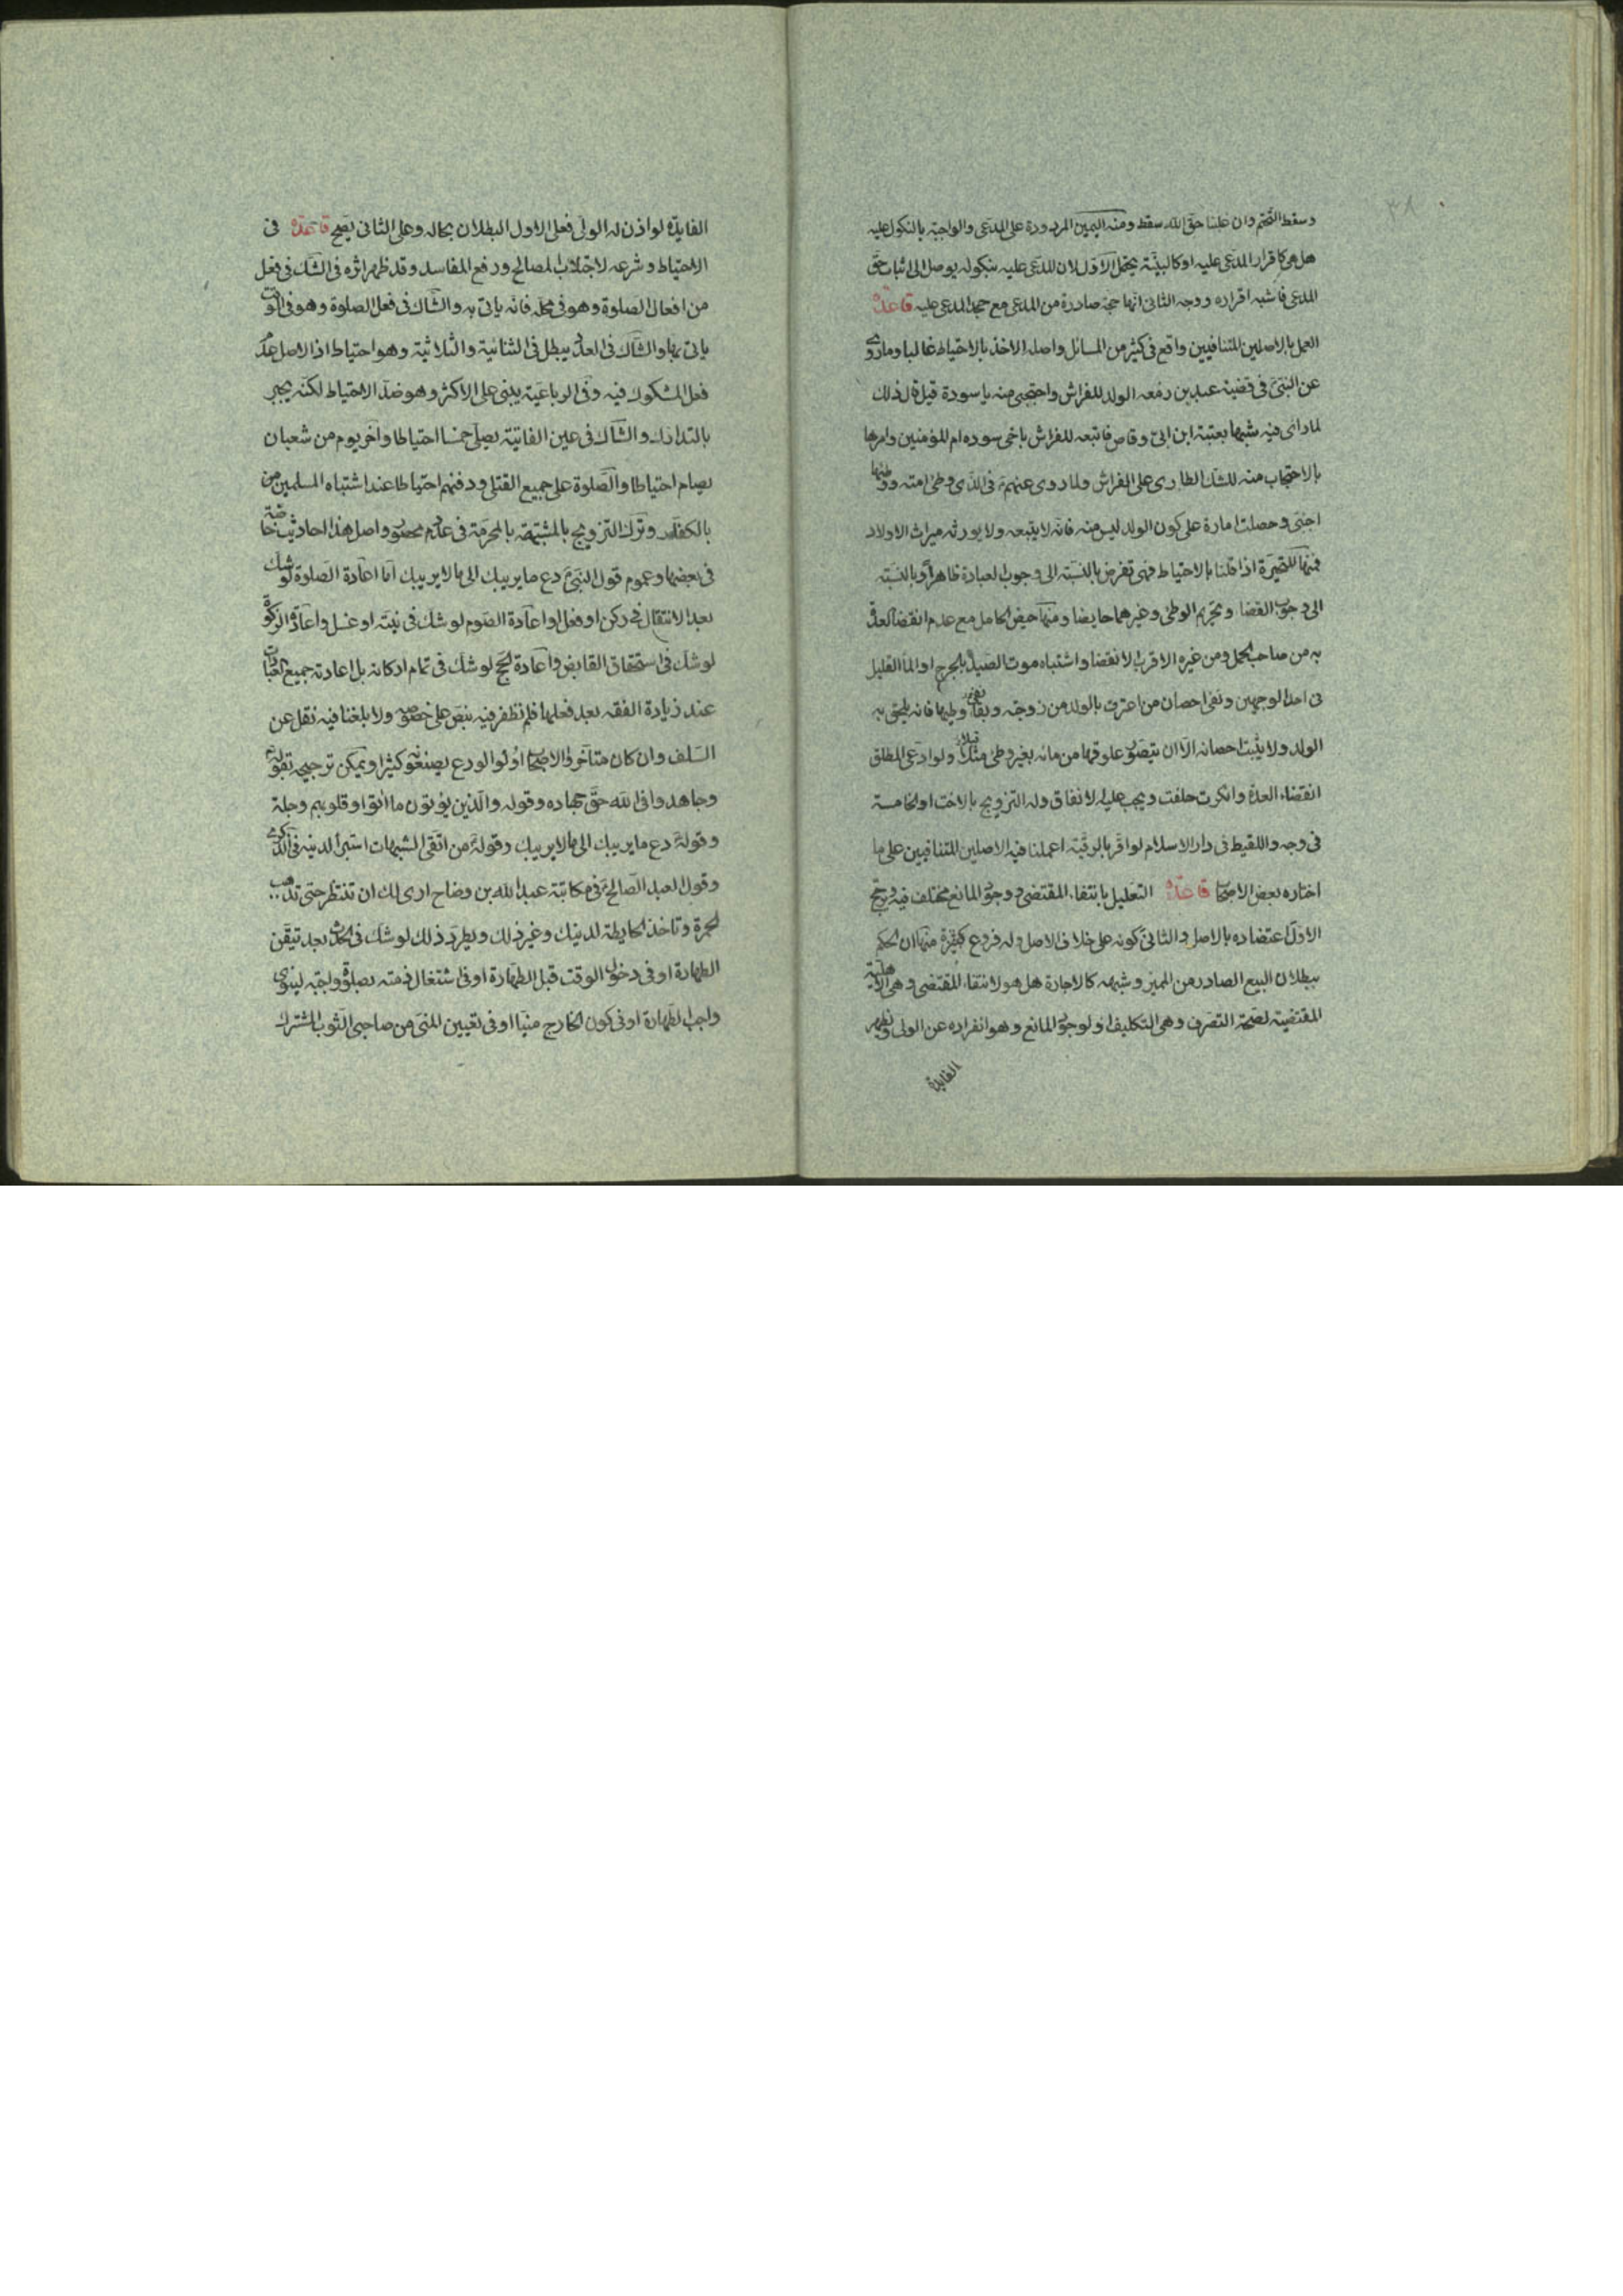 ٣٨
وسقط التحتم وان غلبنا حق الله سقط ومنه اليمين المردودة على المدعى والواجبة بالنكول عليه
هل هى كاقرار المدعى عليه او كالبينة يحتمل الاول لان المدعى عليه بنكوله يوصل الى اثبات حق
المدعى فاشبه اقراره ووجه الثانى انها حجة صادرة من المدعى مع جحد المدعى عليه قاعدة
العمل بالاصلين المتنافيين واقع فى كثير من المسائل واصله الاخذ بالاحتياط غالبا وما روى
عن النبى فى قضية عبد بن زمعه الولد للفراش واحتجبى منه يا سودة قيل قال ذلك
لما راى فيه شبها بعتبة ابن ابى وقاص فاتبعه للفراش باخى سوده ام المؤمنين وامرها
بالاحتجاب منه للشك الطارى على الفراش ولما روى عنهم فى الذى وطى امته ووطئها
اجنبى وحصلت امارة على كون الولد ليس منه فانه لا يتبعه ولا يورثه ميراث الاولاد
فمنها المتحيرة اذا قلنا بالاحتياط فهى تفرض بالنسبة الى وجوب العبادة طاهرا وبالنسبة
الى وجوب القضاء وتحريم الوطى وغيرهما حايضا ومنها حيض الحامل مع عدم انقضا العدة
به من صاحب الحمل ومن غيره الاقرب الانقضا واشتباه موت الصيد بالجرح او الماء القليل
فى احد الوجهين ونفى احصان من اعترف بالولد من زوجته وبقائه نفى وطيها فانه يلحق به
الولد ولا يثبت احصانه الا ان يتصور علوقها من مائه بغير وطى مثلا ولو ادعى المطلق
انقضاء العدة وانكرت حلفت ويجب عليه الانفاق وله التزويج بالاخت او الخامسة
فى وجه واللقيط فى دار الاسلام لو اقر بالرقية اعملنا فيه الاصلين المتنافيين على ما
اختاره بعض الاصحاب قاعدة التعليل بانتفاء المقتضى ووجود المانع مختلف فيه ويرجح
الاول اعتضاده بالاصل والثانى كونه على خلاف الاصل وله فروع كثيرة منها ان الحكم
ببطلان البيع الصادر من المميز وشبهه كالاجارة هل هو لانتفاء المقتضى وهى الاهلية
المقتضية لصحة التصرف وهى التكليف او لوجود المانع وهو انفراده عن الولى وتظهر
الفايدة
الفايدة لو اذن له الولى فعلى الاول البطلان بحاله وعلى الثانى يصح قاعدة فى
الاحتياط وشرعه لاجتلاب المصالح ودفع المفاسد وقد ظهر اثره فى الشك فى فعل
من افعال الصلوة وهو فى محله فانه ياتى به والشاك فى فعل الصلوة وهو فى الوقت
ياتى بها والشاك فى العدد يبطل فى الثنائية والثلاثية وهو احتياط اذ الاصل عدم
فعل المشكوك فيه وفى الرباعية يبنى على الاكثر وهو ضد الاحتياط لكنه يجبر
بالتدارك والشاك فى عين الفائتة يصلى خمسا احتياطا واخر يوم من شعبان
يصام احتياطا والصلوة على جميع القتلى ودفنهم احتياطا عند اشتباه المسلمين منهم
بالكفار وترك التزويج بالمشتبهة بالمحرمة فى عدد محصور واصل هذا احاديث خاصة
فى بعضها وعموم قول النبى دع ما يريبك الى ما لا يريبك اما اعادة الصلوة لو شك
بعد الانتقال فى ركن او فعل او اعادة الصوم لو شك فى نيته او غسل واعادة الزكوة
لو شك فى استحقاق القابض واعادة الحج لو شك فى تمام اركانه بل اعادته جميع العبادات
عند زيادة الفقه بعد فعلها فلم نظفر فيه بنص على خصوصه ولا بلغنا فيه نقل عن
السلف وان كان متاخروا الاصحاب اولوا الورع يصنعونه كثيرا ويمكن ترجيحه بقوله
وجاهدوا فى الله حق جهاده وقوله والذين يؤتون ما اتوا وقلوبهم وجلة
وقوله دع ما يريبك الى ما لا يريبك وقوله من اتقى الشبهات استبرأ لدينه
وقول العبد الصالح فى مكاتبة عبد الله بن وضاح ارى لك ان تنتظر حتى تذهب
الحمرة وتاخذ الحايطة لدينك وغير ذلك ويطرد ذلك لو شك فى الحدث بعد تيقن
الطهارة او فى دخول الوقت قبل الطهارة او فى اشتغال ذمته بصلوة واجبة لينوى
واجب الطهارة او فى كون الخارج منيا او فى تعيين المنى من صاحبى الثوب المشترك